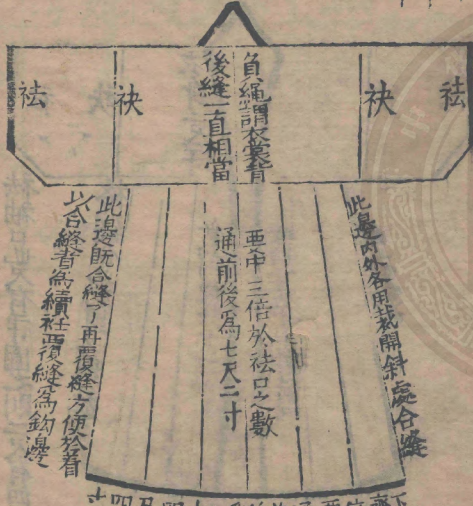 袪
袂
負繩謂衣裳背
後縫一直相當
袂
袪
此邊內外各用裁開斜處合縫
要中三倍於袪口之數
通前後為七尺二寸
此邊既合縫了再覆縫方便於着
以合縫者為續衽覆縫為鈎邊